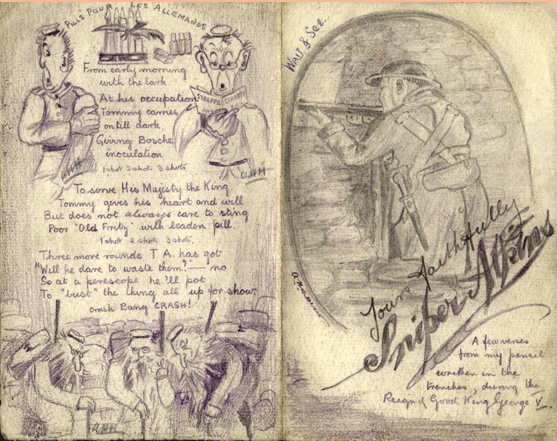 PILLS POUR LES ALLEMANDS
From early morning
with the lark
At his occupation
Tommy carries
ontill dark
Giving Bosche
inoculation
1 shot 2 shots 3 shots
To serve His Majesty the King
Tommy gives his heart and will
But does not always care to sting
Poor "Old Fritz" with leaden pill.
1 shot 2 shots 3 shots.
Three more rounds T. A. has got
"Will he dare to waste them?" — no
So at a perescope he'll pot
To "bust" the thing all up for show.
Crash Bang CRASH!
Wait & See.
Yours Faithfully
Sniper Atkins
A few verses
from my pencil
written in the
trenches, during the
Reign of Good King George V.